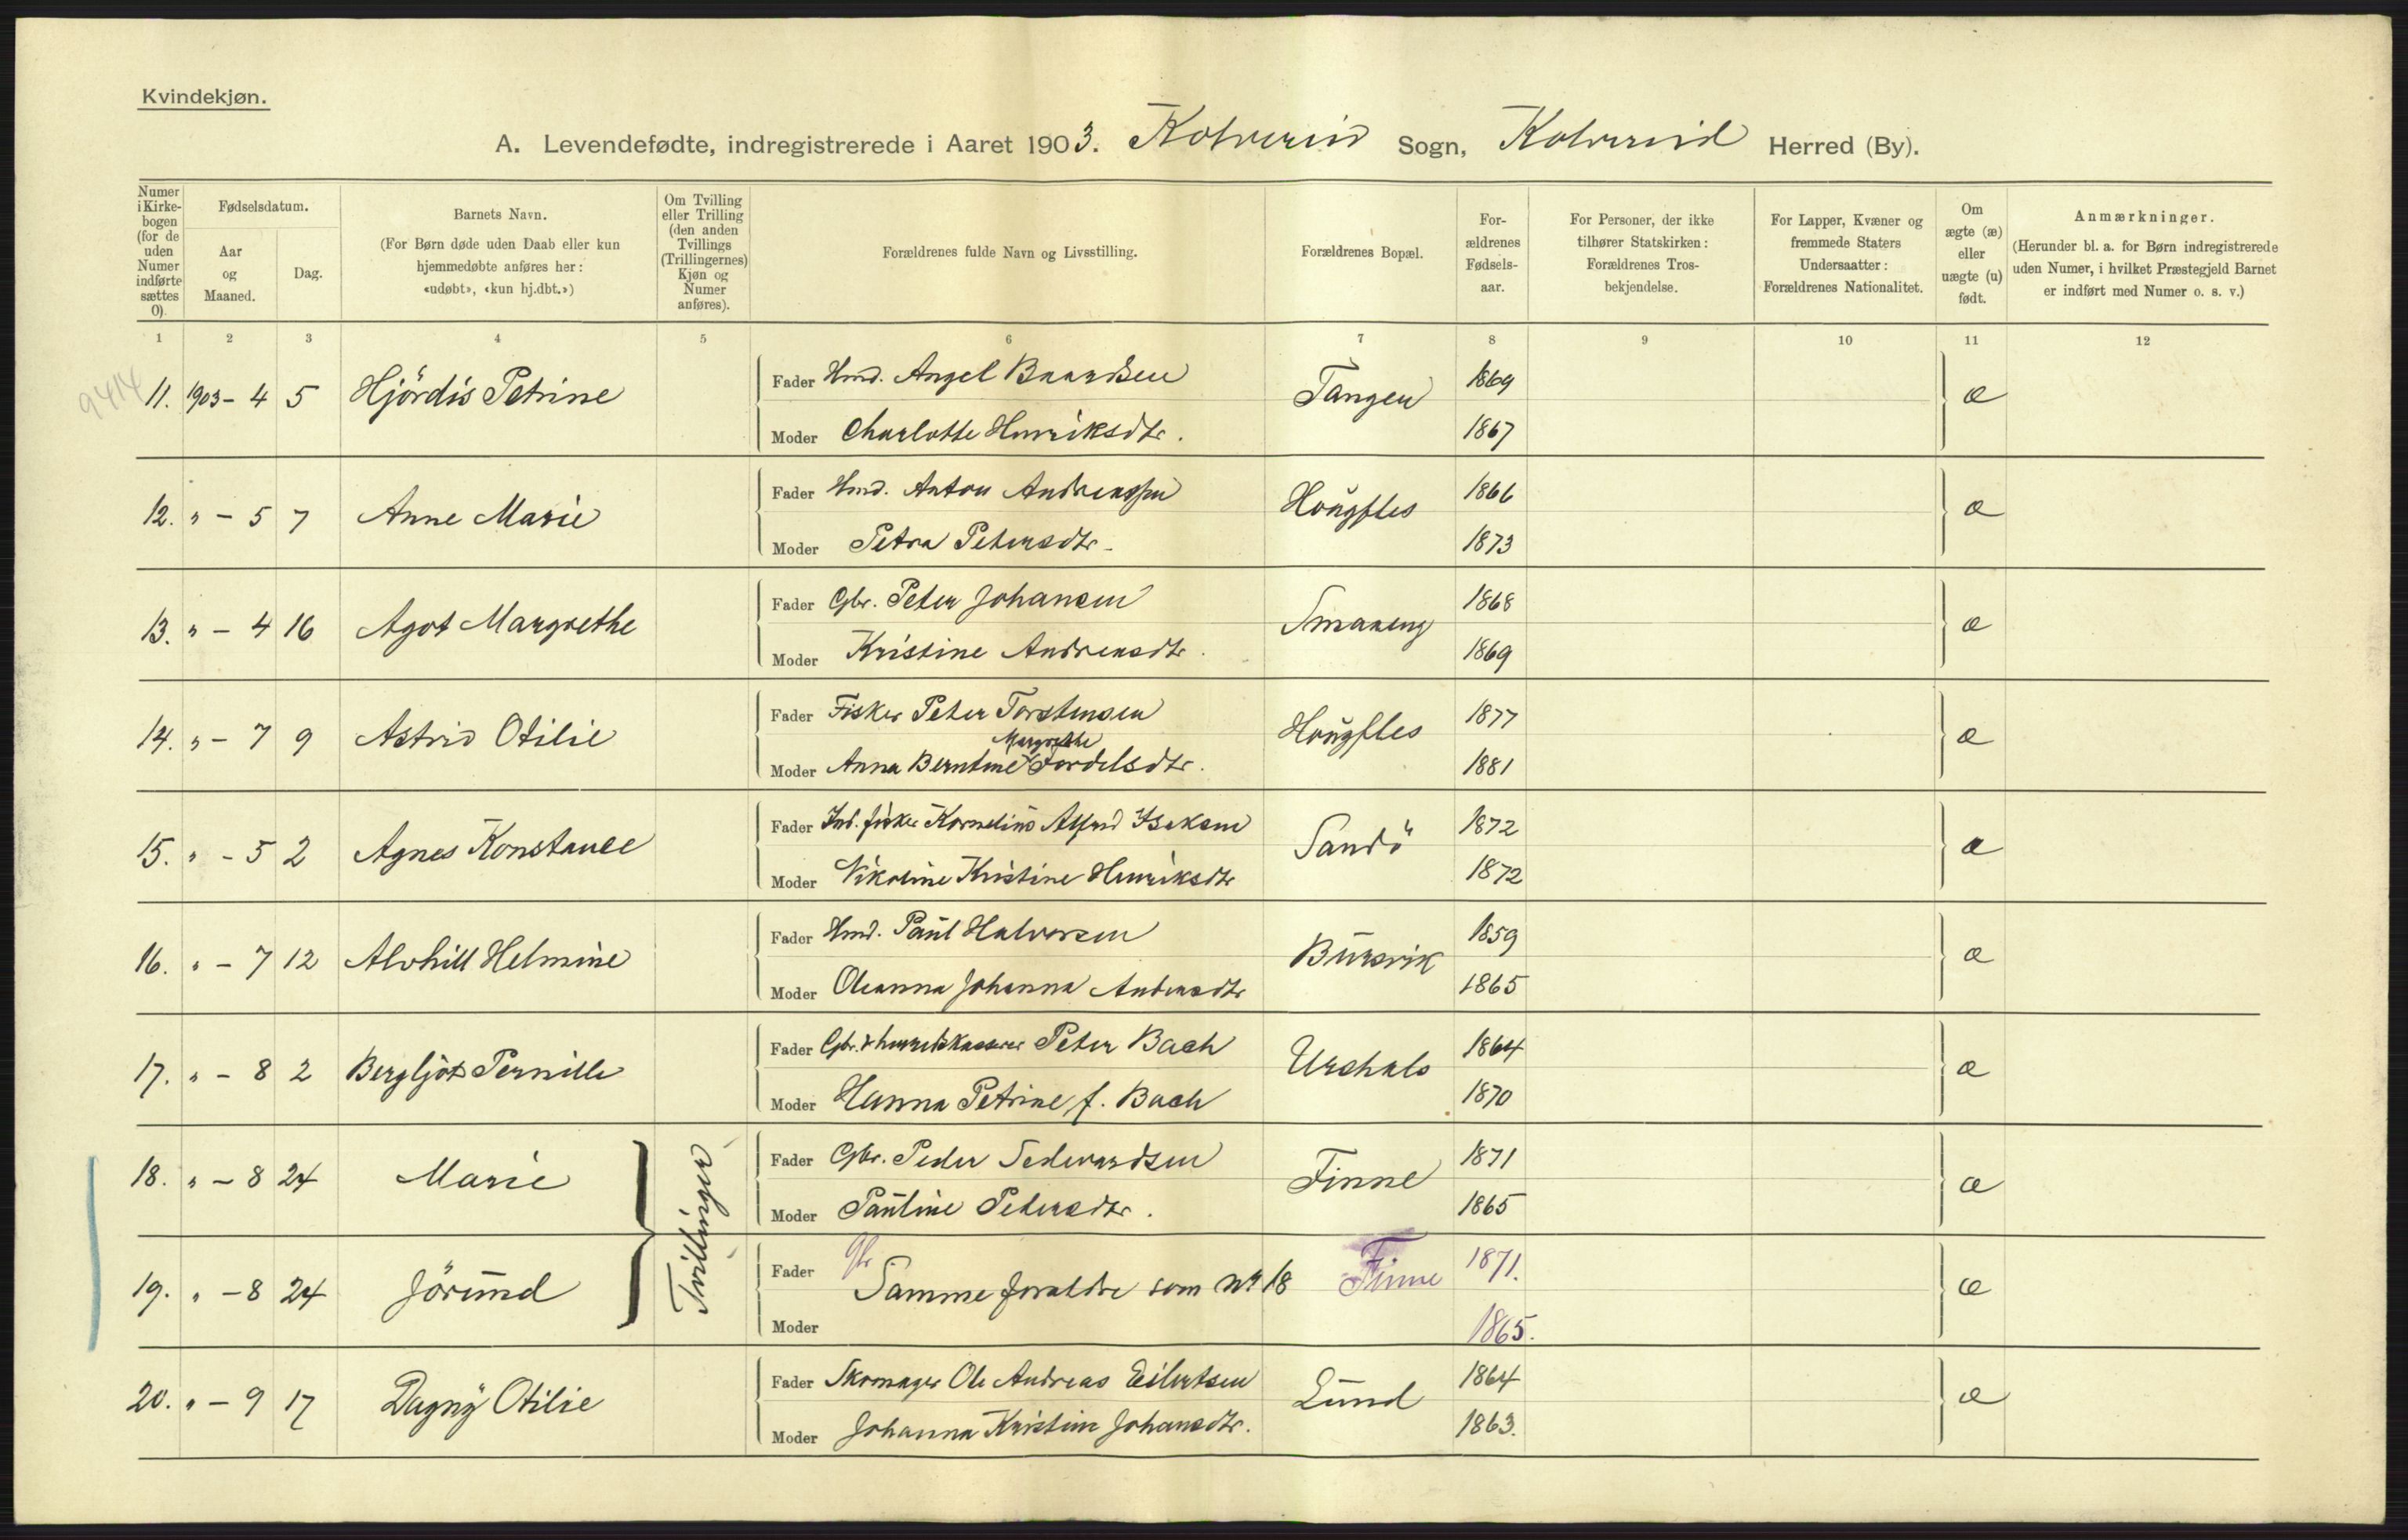 Kvindekjøn.
A. Levendefødte, indregistrerede i Aaret 1903. Kolvereid Sogn, Kolvereid Herred (By).
Numer i Kirkebogen (for de uden Numer indførte sættes 0).
Fødselsdatum.
Aar og Maaned.
Dag.
Barnets Navn.
(For Børn døde uden Daab eller kun hjemmedøbte anføres her: «udøbt», «kun hj.dbt.»)
Om Tvilling eller Trilling (den anden Tvillings (Trillingernes) Kjøn og Numer anføres).
Forældrenes fulde Navn og Livsstilling.
Forældrenes Bopæl.
Forældrenes Fødselsaar.
For Personer, der ikke tilhører Statskirken: Forældrenes Trosbekjendelse.
For Lapper, Kvæner og fremmede Staters Undersaatter: Forældrenes Nationalitet.
Om ægte (æ) eller uægte (u) født.
Anmærkninger.
(Herunder bl. a. for Børn indregistrerede uden Numer, i hvilket Præstegjeld Barnet er indført med Numer o. s. v.)
1 2 3 4 5 6 7 8 9 10 11 12
9414
11. 1903 - 4 5 Hjördis Petrine Fader Hmd. Angel Baardsen Tangen 1869 æ
Moder Charlotte Henriksdtr. 1867
12. " - 5 7 Anne Marie Fader Hmd. Anton Andreassen Hougfles 1866 æ
Moder Petra Petersdtr. 1873
13. " - 4 16 Agot Margrethe Fader Gbr. Peter Johansen Smaaeng 1868 æ
Moder Kristine Andreasdtr. 1869
14. " - 7 9 Astrid Otilie Fader Fisker Peter Torstensen Hougfles 1877 æ
Margrethe
Moder Anna Berntine Fordelsdtr. 1881
15. " - 5 2 Agnes Konstance Fader Ind. fisker Kornelius Alfred Isaksen Sandö 1872 æ
Moder Nikoline Kristine Henriksdtr 1872
16. " - 7 12 Alvhill Helmine Fader Hmd. Paul Halvorsen Bursvik 1859 æ
Moder Oleanna Johanna Andreasdtr 1865
17. " - 8 2 Bergljot Pernille Fader Gbr. & herredskasserer Peter Bach Urshals 1864 æ
Moder Hanna Petrine f. Bach 1870
18. " - 8 24 Marie Tvillinger Fader Gbr. Peder Sedevardsen Finne 1871 æ
Moder Pauline Petersdtr. 1865
19. " - 8 24 Jörund Fader Gbr Samme forældre som No 18 Finne 1871. æ
Moder 1865.
20. " - 9 17 Dagny Otilie Fader Skomager Ole Andreas Eilertsen Lund 1864 æ
Moder Johanna Kristine Johansdtr. 1863.